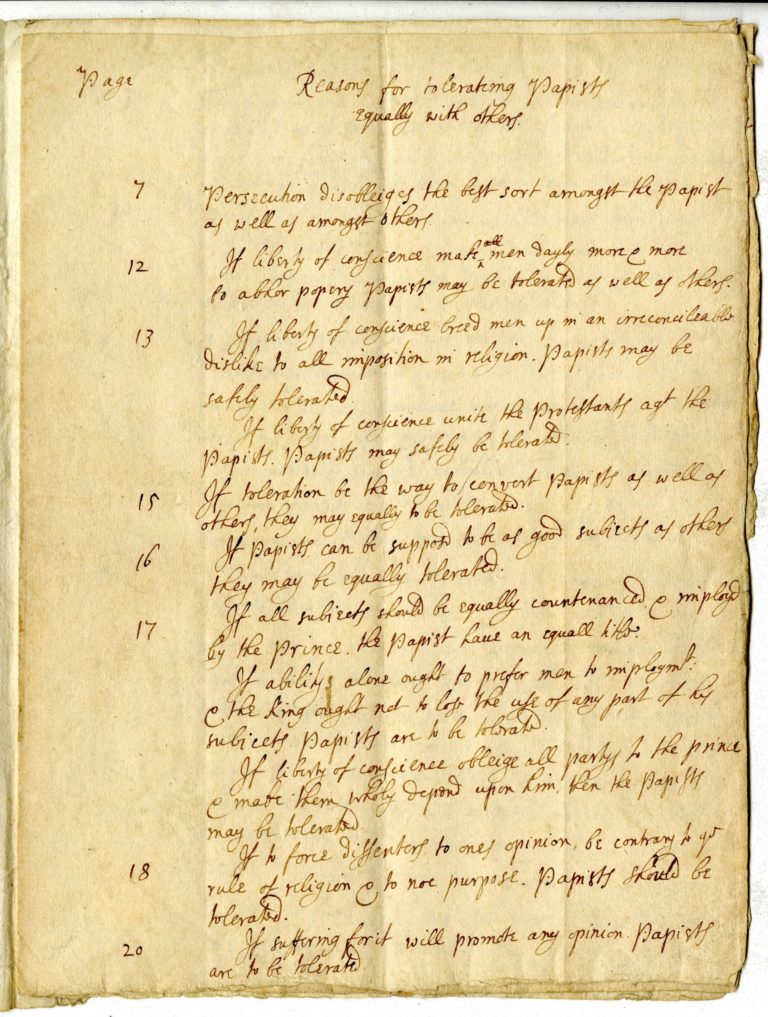 Page Reasons for tolerateing Papists
equally with others.
7 Persecution disobleiges the best sort amongst the Papist
as well as amongst others.
12 If liberty of conscience make all men dayly more & more
to abhor popery Papists may be tolerated as well as others.
13 If liberty of conscience breed men up in an irreconcileable
dislike to all imposition in religion. Papists may be
safely tolerated.
If liberty of conscience unite the Protestants agt the
Papists. Papists may safely be tolerated.
15 If toleration be the way to convert Papists as well as
others, they may equally to be tolerated.
16 If Papists can be supposd to be as good subjects as others
they may be equally tolerated.
17 If all subjects should be equally countenanced, & imployd
by the Prince. the Papist have an equall title.
If abilitys alone ought to prefer men to imploymt:
& the King ought not to lose the use of any part of his
subjects Papists are to be tolerated.
If liberty of conscience obleige all partys to the prince
& make them wholy depend upon him. then the Papists
may be tolerated
18 If to force dissenters to ones opinion, be contrary to ye
rule of religion & to noe purpose. Papists should be
tolerated.
20 If suffering for it will promote any opinion. Papists
are to be tolerated